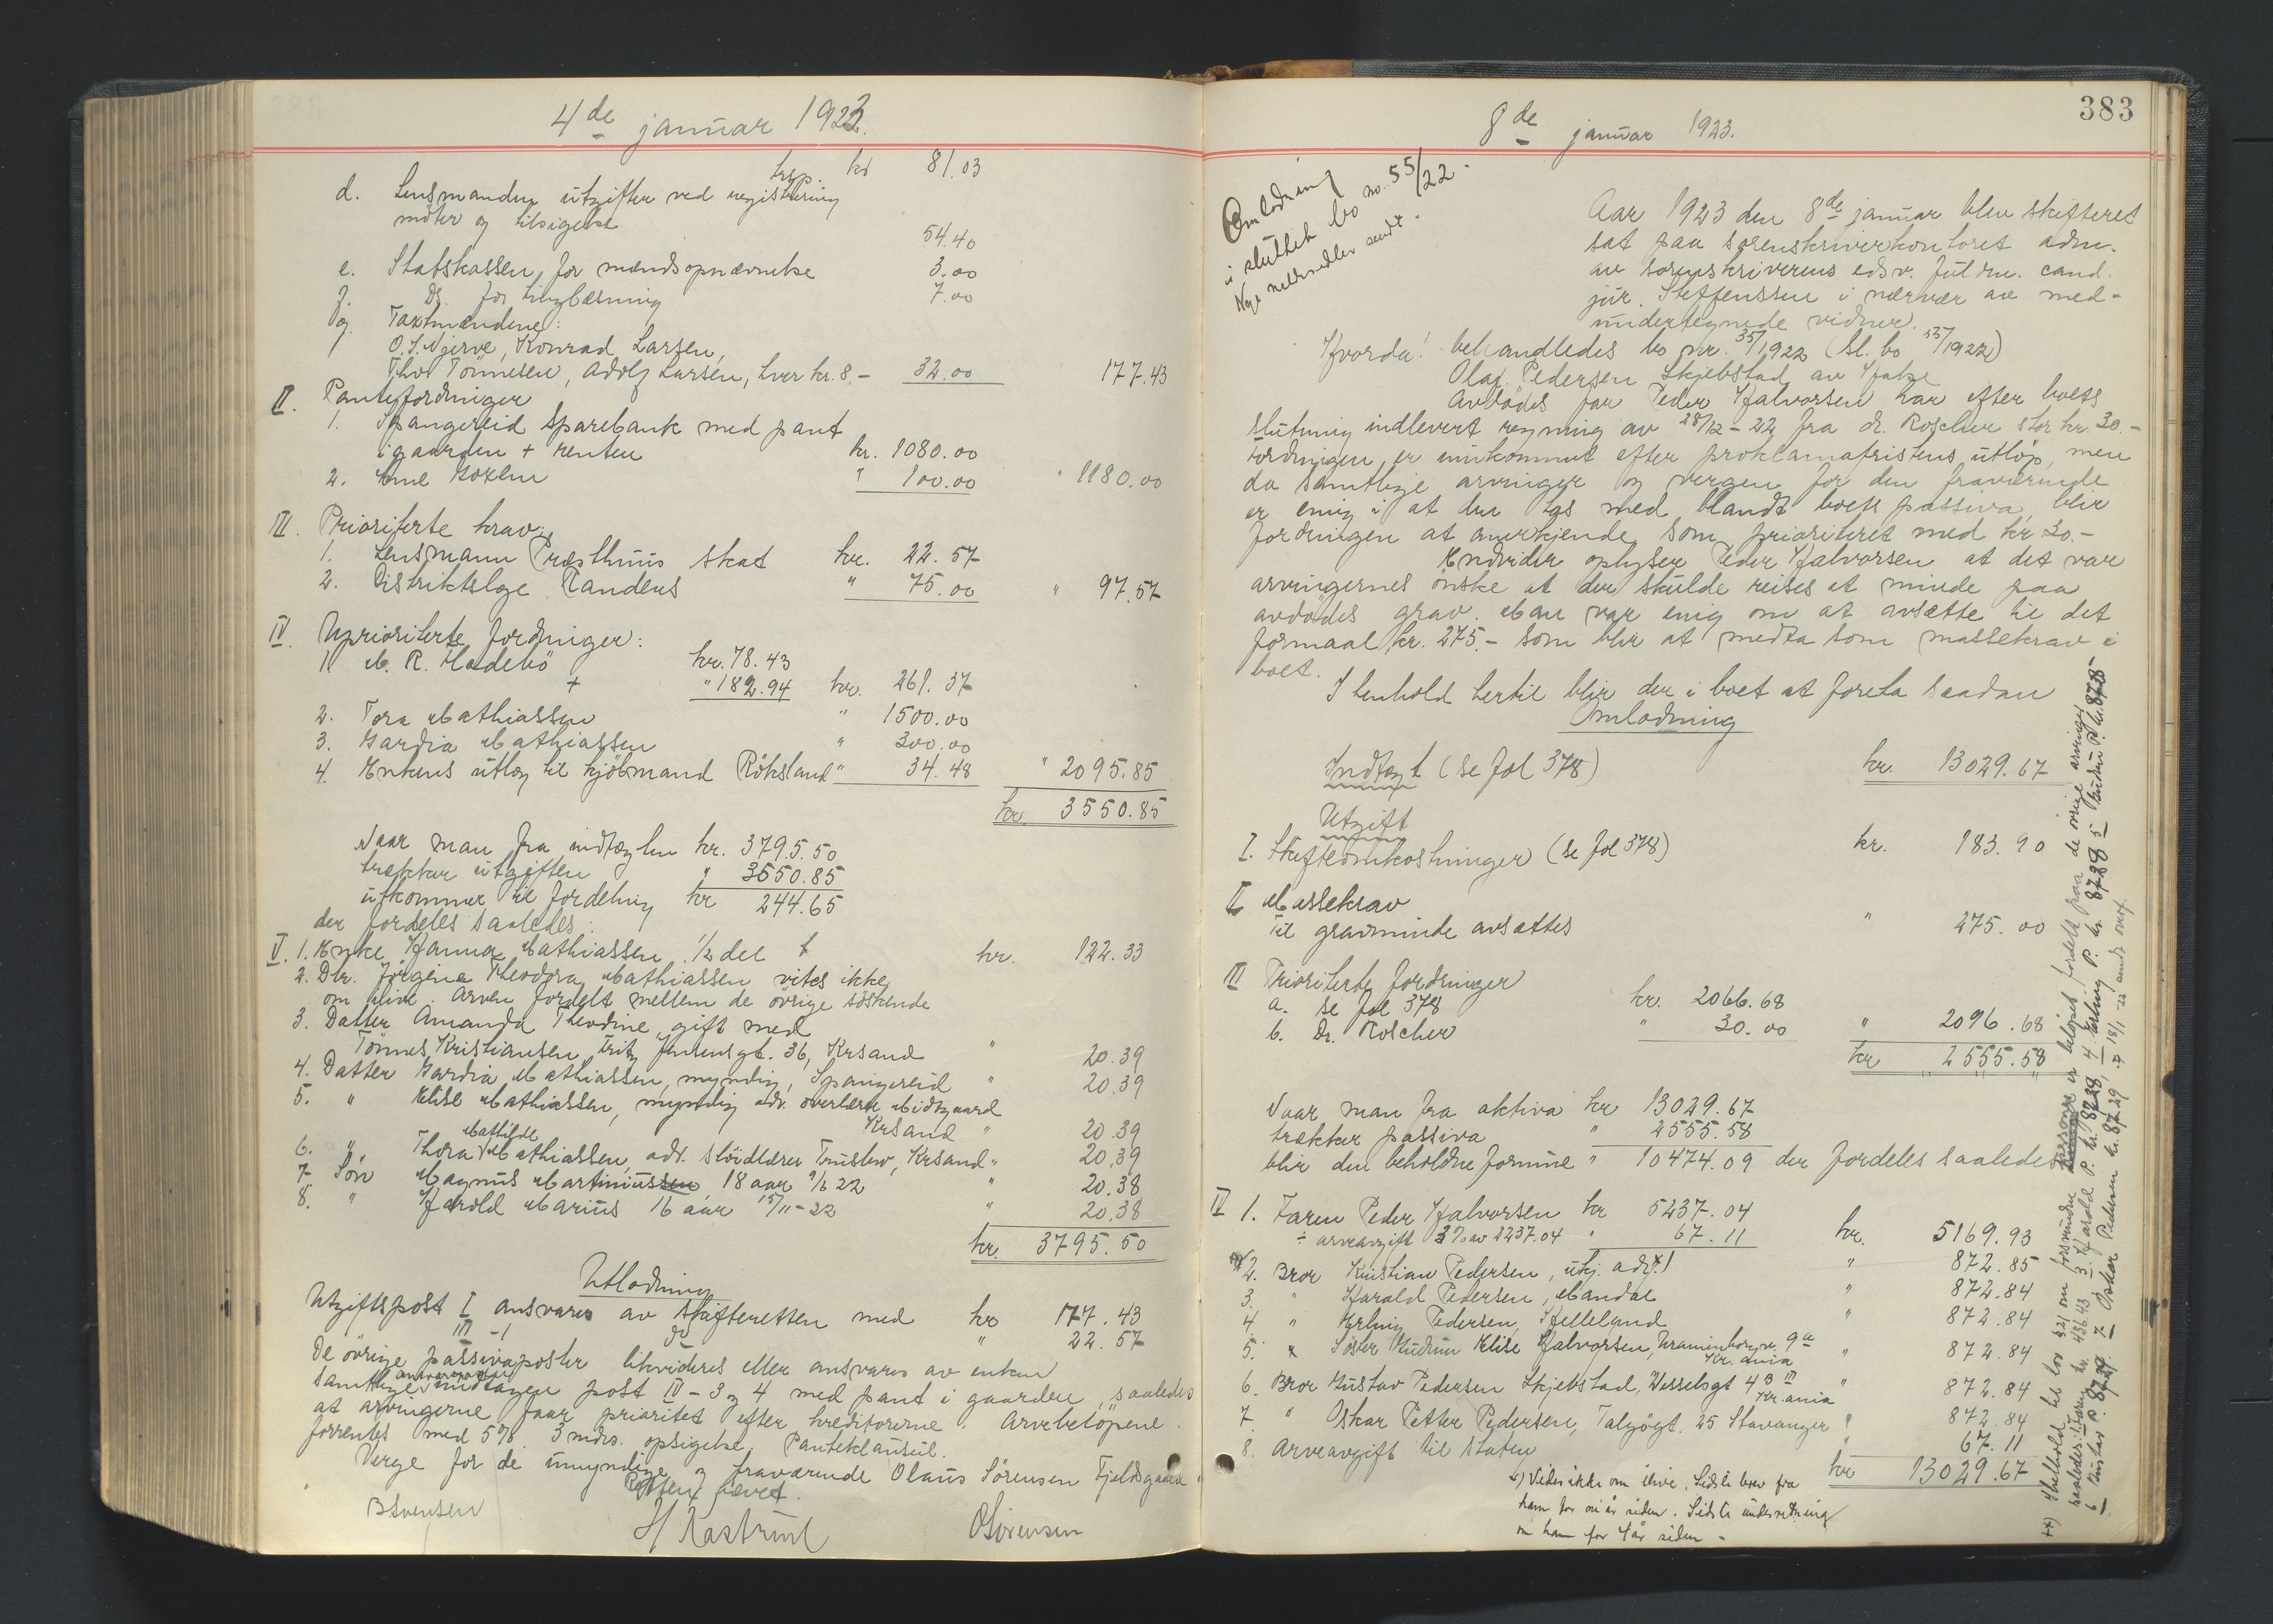 4de januar 1923.
trsp. kr 81.03
d. Lensmandens utgifter ved registrering
møter og tilsigelse 54.40
e. Statskassen, for mændsopnævnelse 3.00
f. Do. for tinglæsning 7.00
g. Taxtmændene:
O.J. Njerve, Konrad Larsen,
Thv. Tønnesen, Adolf Larsen, hver kr. 8.- 32.00 177.43
II. Pantefordringer
1. Spangereid Sparebank med pant
i gaarden + renten kr. 1080.00
2. " 100.00 " 1180.00
III. Prioriterte krav:
1. Lensmann Præsthuus skat kr. 22.57
2. Distriktslæge Randers " 75.00 " 97.57
IV. Uprioriterte fordringer:
1. M. R. Hadebö kr. 78.43
+ " 182.94 kr. 261.37
2. Tora Mathiassen " 1500.00
3. Gardia Mathiassen " 300.00
4. Enkens utlæg til kjøbmand Röksland " 34.48 " 2095.85
kr. 3550.85
Naar man fra indtægten kr. 3795.50
trækker utgiften " 3550.85
utkommer til fordeling kr 244.65
der fordeles saaledes:
V. 1. Enke Hanna Mathiassen 1/2 del kr. 122.33
2. Dtr. Jörgine Theodora Mathiassen vites ikke
om ilive. Arven fordelt mellem de övrige söskende
3. Datter Amanda Theodine, gift med
Tönnes Kristiansen, Fritz Jensensgt. 36, Krsand " 20.39
4. Datter Gardia Mathiassen, myndig, Spangereid " 20.39
5. " Elise Mathiassen, myndig adr. overlærer Midtgaard
Krsand " 20.39
6. " Thora Mathilde Mathiassen, adr. slöidlærer Truslew, Krsand " 20.39
7. Sön Magnus Martiniussen, 18 aar 9/6 22 " 20.38
8. " Harold Marius 16 aar 15/11-22 " 20.38
kr. 3795.50
Utlodning
Utgiftspost I ansvares av skifteretten med kr 177.43
III-1 do " 22.57
De övrige passivaposter likvideres eller ansvares av enken
samtlige undtagen post IV-3 og 4 med pant i gaarden, saaledes
at arvingerne faar prioritet efter kreditorerne. Arvebelöpene
forrentes med 5%. 3 mdrs. opsigelse. Panteklausul.
Verge for de umyndige og fraværende Olaus Sörensen Fjeldsgaard
Retten hævet.
B Svensen H Kastrud O Sörensen
383
8de januar 1923.
Omlodning
i sluttet bo no. 55/22 -
Nye meldsedler sendt.
Aar 1923 den 8de januar blev skifteret
sat paa sorenskriverkontoret adm.
av sorenskriverens edsv. fuldm. cand.
jur. Steffenssen i nærvær av med-
undertegnede vidner.
Hvorda! behandledes bo nr. 35/1922 (Sl. bo 55/1922)
Olaf Pedersen Skjebstad av Halse
Avdödes far Peder Halvorsen har efter boets
slutning indlevert regning av 28/12-22 fra dr. Roscher stor kr. 30.-
Fordringen er innkommet efter proklamafristens utlöp, men
da samtlige arvinger og vergen for den fraværende
er enig i at den tas med blandt boets passiva, blir
fordringen at anerkjende som prioriteret med kr 30.-
Endvider oplyser Peder Halvorsen at det var
arvingernes önske at der skulde reises et minde paa
avdödes grav. Man var enig om at avsætte til det
formaal kr. 275.- som blir at medta som massekrav i
boet.
I henhold hertil blir der i boet at foreta saadan
Omlodning
Indtægt (se fol 378) kr. 13029.67
Utgift
I. Skifteomkostninger (se fol 378) kr. 183.90
II Massekrav
Til gravminde avsættes " 275.00
III Prioriterte fordringer
a. se fol 378 kr. 2066.68
b. Dr. Roscher " 30.00 " 2096.68
kr 2555.58
Naar man fra aktiva kr 13029.67
trækker passiva " 2555.58
blir den beholdne formue " 10474.09 der fordeles saaledes
IV 1. Faren Peder Halvorsen kr 5237.04
÷ arveavgift 3% av 2237.04 " 67.11 kr. 5169.93
2. Bror Kristian Pedersen, ukj. adr. +) " 872.85
3. " Harald Pedersen, Mandal " 872.84
4. " Erling Pedersen, Helleland " 872.84
5. " Söster Gudrun Elise Halvorsen, Uranienborgv. 9a
Kr.ania " 872.84
6. Bror Gustav Pedersen Skjebstad, Wesselsgt 4 B III
Kr.ania " 872.84
7. " Oskar Petter Pedersen, Talgögt. 25 Stavanger " 872.84
8. Arveavgift til staten " 67.11
kr 13029.67
+) Vides ikke om ilive. Sidste brev fra
ham for ni år siden. Sidste underretning
om ham for 4 år siden -
++) I henhold til lov § 21 om forsvundne er belöpet fordelt paa de övrige arvinger
saaledes: 1 Faren kr. 436.43 3 Harald P. kr. 87.28 4 Erling P. kr. 87.28 5 Gudrun P. kr. 87.28
6 Gustav P. 87.29 7 Oskar Pedersen kr. 87.29